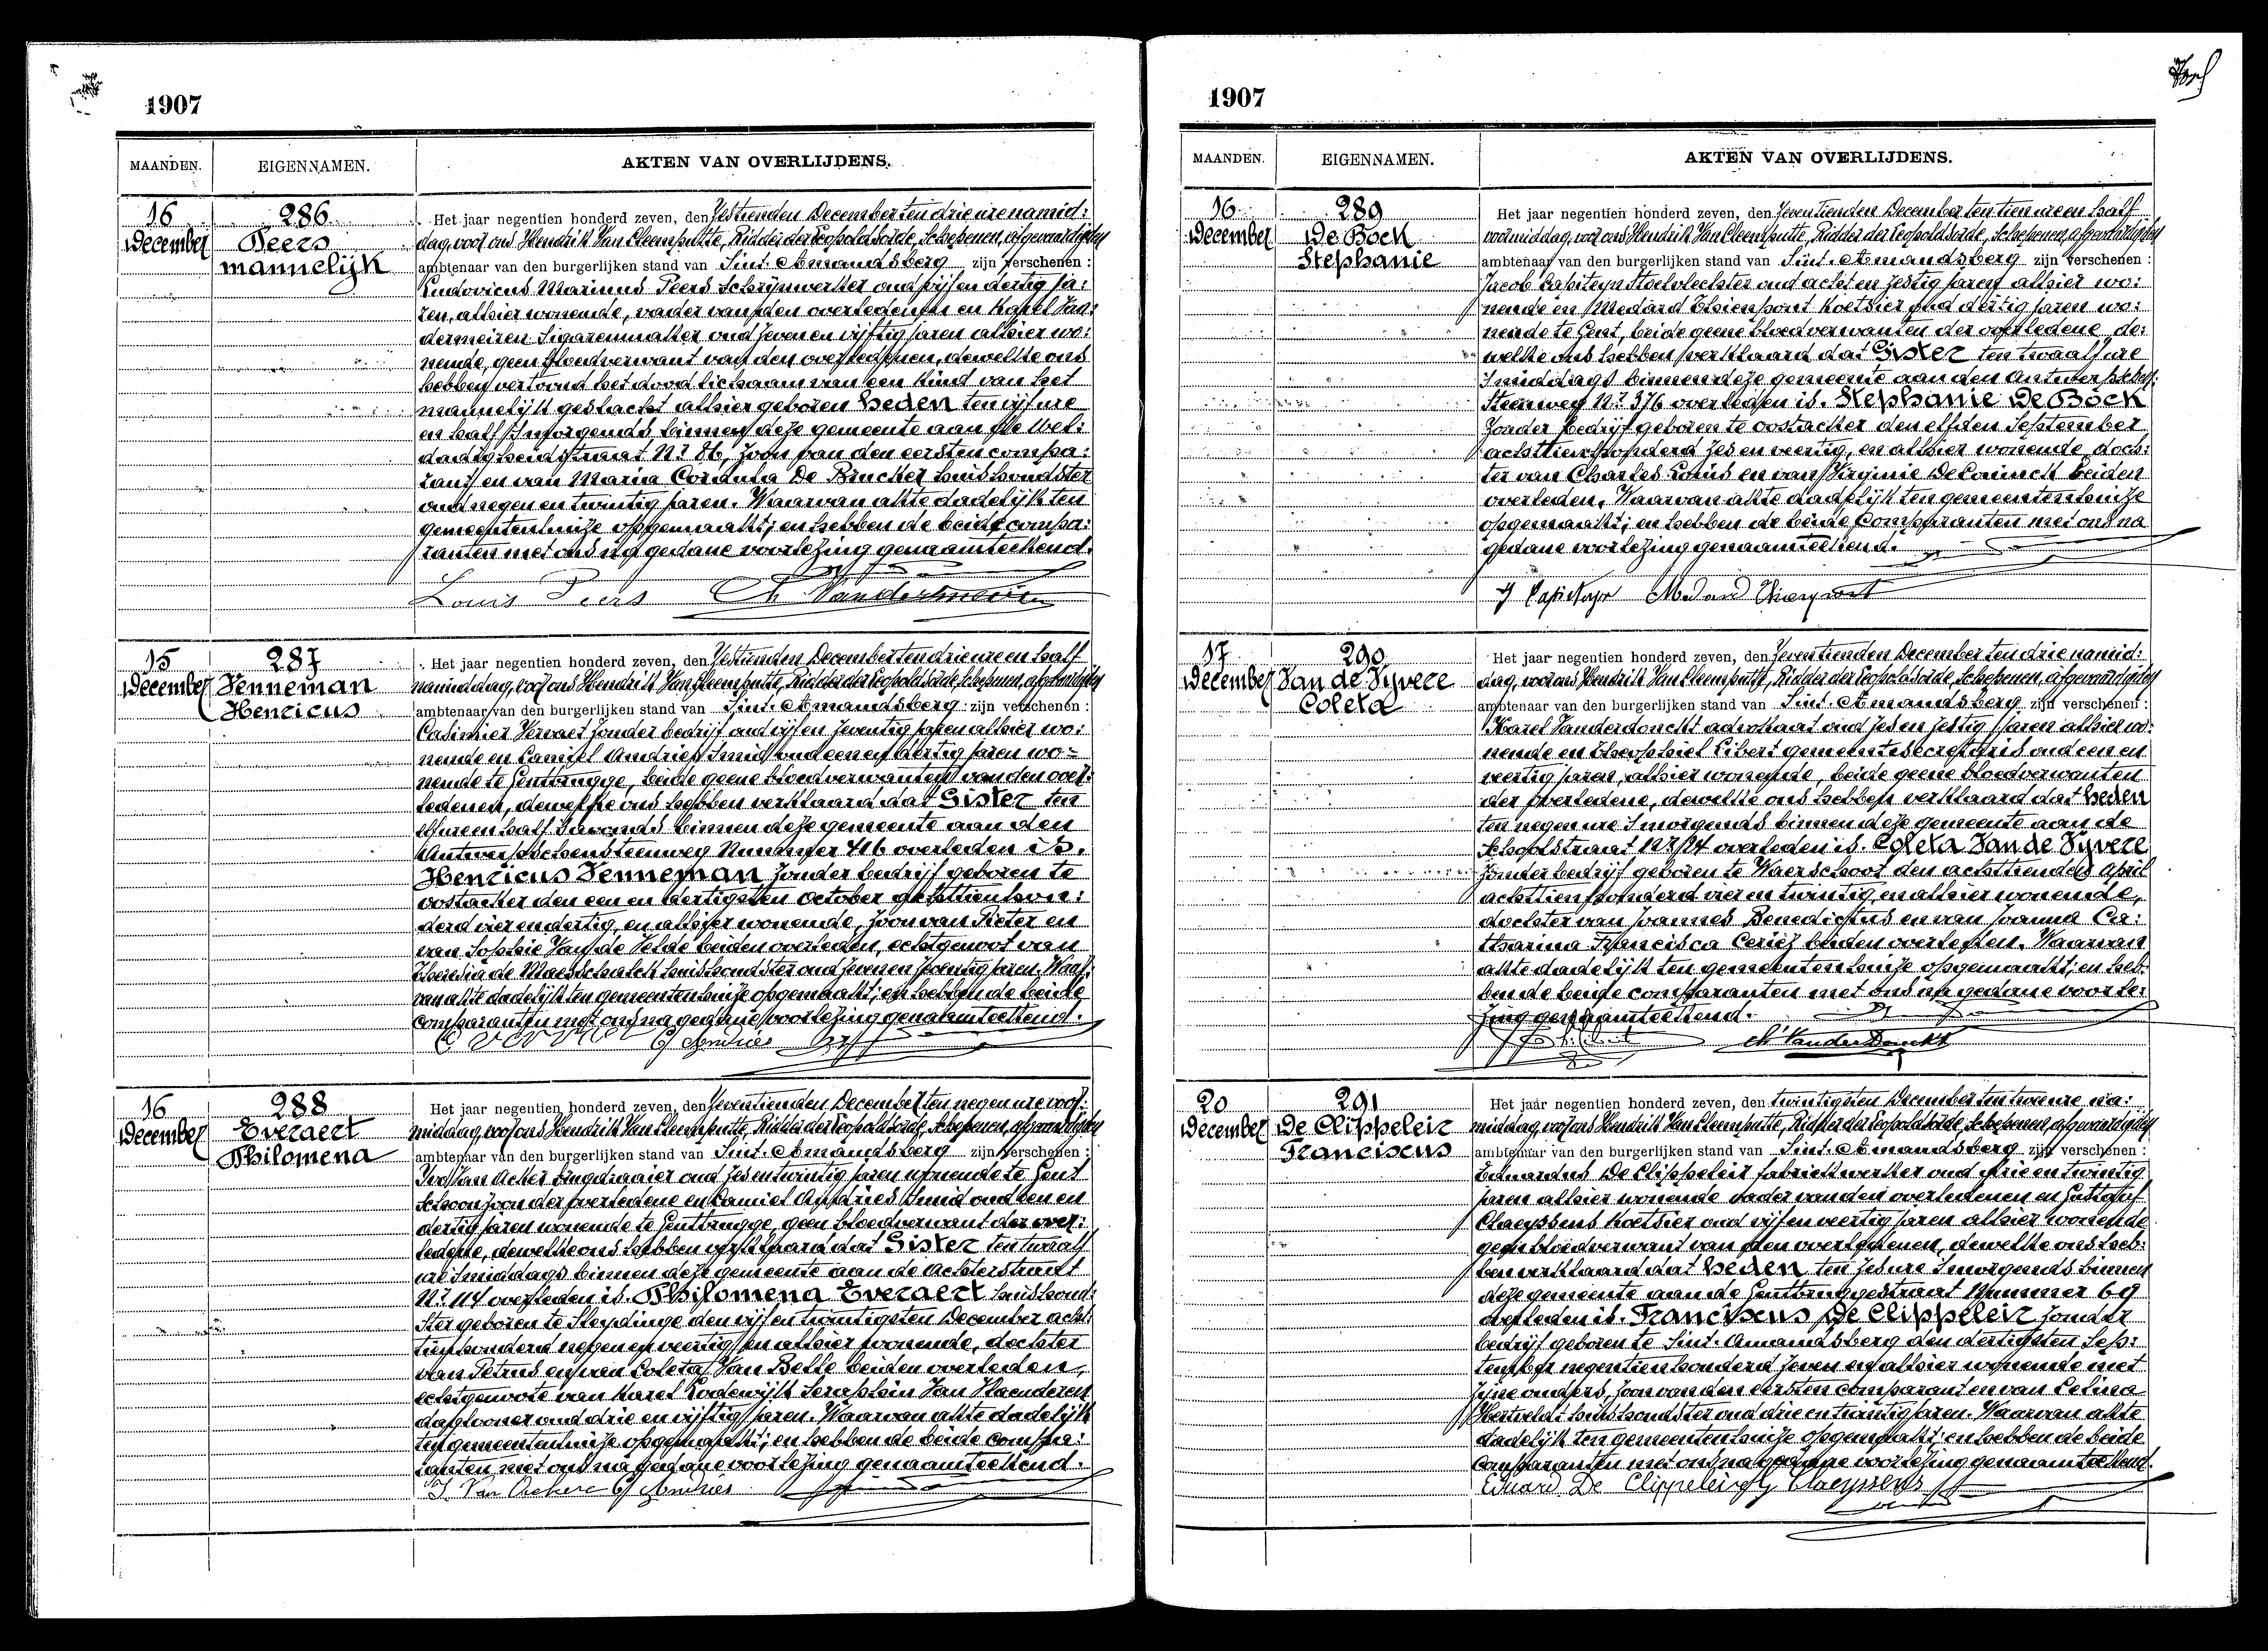 1907
MAANDEN. EIGENNAMEN. AKTEN VAN OVERLIJDENS.
16 December
286
Peers
mannelijk
Het jaar negentien honderd zeven, den Zestienden December ten drie ure namid:
dag, voor ons Hendrik Van Cleemputte, Ridder der Leopoldsorde, Schepenen, afgevaardigden
ambtenaar van den burgerlijken stand van Sint-Amandsberg zijn verschenen:
Ludovicus Marinus Peers schrijnwerker oud vijf en dertig ja:
ren, alhier wonende, vader van den overledenen en Karel Van:
dermeiren Sigarenmaker oud zeven en vijftig jaren alhier wo:
nende, geen bloedverwant van den overledenen, dewelke ons
hebben vertoond het dood lichaam van een Kind van het
mannelijk geslacht alhier geboren heden ten vijf ure
en half 's morgends binnen deze gemeente aan de Wel:
dadigheidstraat N.r 86, zoon van den eersten compa:
rant en van Maria Cordula De Brucker huishoudster
oud negen en twintig jaren. Waarvan akte dadelijk ten
gemeentenhuize opgemaakt; en hebben de beide compa:
ranten met ons na gedane voorlezing genaamteekend.
Louis Peers Ch Vandermeiren
15 December
287
Venneman
Henricus
Het jaar negentien honderd zeven, den Zestienden December ten drie ure en half
namiddag, voor ons Hendrik Van Cleemputte, Ridder der Leopoldsorde, Schepenen, afgevaardigden
ambtenaar van den burgerlijken stand van Sint-Amandsberg zijn verschenen:
Casimier Vervaet zonder bedrijf oud vijf en zeventig jaren alhier wo:
nende en Camiel Andries Smid oud een en dertig jaren wo-
nende te Gentbrugge, beide geene bloedverwanten van den over:
ledenen, dewelke ons hebben verklaard dat Gister ten
elf ure en half 's avonds binnen deze gemeente aan den
Antwerpschensteenweg Nummer 416 overleden is.
Henricus Venneman zonder bedrijf geboren te
Oostacker den een en dertigsten October achttienhon:
derd vier en dertig, en alhier wonende, zoon van Pieter en
van Sophie Van de Velde beiden overleden, echtgenoot van
Theresia de Maesschalck huishoudster oud zeven en zeventig jaren. Waar:
van akte dadelijk ten gemeentenhuize opgemaakt; en hebben de beide
comparanten met ons na gedane voorlezing genaamteekend.
C Vervaet C Andries
16 December
288
Everaert
Philomena
Het jaar negentien honderd zeven, den Zeventienden December ten negen ure voor:
middag, voor ons Hendrik Van Cleemputte, Ridder der Leopoldsorde, Schepenen, afgevaardigden
ambtenaar van den burgerlijken stand van Sint-Amandsberg zijn verschenen:
Van Acker oud zes en twintig jaren wonende te Gent
Schoonzoon der overledene en Camiel Andries Smid oud een en
dertig jaren wonende te Gentbrugge, geen bloedverwant der over:
ledene, dewelke ons hebben verklaard dat Gister ten twaalf
ure 's middags binnen deze gemeente aan de Achterstraat
N.r 114 overleden is. Philomena Everaert huishoud:
ster geboren te Sleydinge den vijf en twintigsten December acht:
tienhonderd negen en veertig en alhier wonende, dochter
van Petrus en van Coleta Van Belle beiden overleden,
echtgenoote van Karel Lodewijk Seraphin Van Vlaenderen
daglooner oud drie en vijftig jaren. Waarvan akte dadelijk
ten gemeentenhuize opgemaakt; en hebben de beide compa:
ranten met ons na gedane voorlezing genaamteekend.
Van Ackere C Andries
1907
MAANDEN. EIGENNAMEN. AKTEN VAN OVERLIJDENS.
16 December
289
De Bock
Stephanie
Het jaar negentien honderd zeven, den Zeventienden December ten tien ure en half
voormiddag, voor ons Hendrik Van Cleemputte, Ridder der Leopoldsorde, Schepenen, afgevaardigden
ambtenaar van den burgerlijken stand van Sint-Amandsberg zijn verschenen:
Jacob Capiteyn Stoelvlechter oud acht en zestig jaren alhier wo:
nende en Medard Thienpont Koetsier oud dertig jaren wo:
nende te Gent, beide geene bloedverwanten der overledene, de:
welke ons hebben verklaard dat Gister ten twaalf ure
's middags binnen deze gemeente aan den Antwerpschen:
Steenweg N.r 376 overleden is. Stephanie De Bock
Zonder bedrijf geboren te Oostacker den elfden September
achttienhonderd zes en veertig, en alhier wonende, doch:
ter van Charles Louis en van Virginie De Coninck beiden
overleden. Waarvan akte dadelijk ten gemeentenhuize
opgemaakt; en hebben de beide Comparanten met ons na
gedane voorlezing genaamteekend.
J Capiteyn Medard Thienpont
17 December
290
Van de Vyvere
Coleta
Het jaar negentien honderd zeven, den Zeventienden December ten drie namid:
dag, voor ons Hendrik Van Cleemputte, Ridder der Leopoldsorde, Schepenen, afgevaardigden
ambtenaar van den burgerlijken stand van Sint-Amandsberg zijn verschenen:
Karel Vanderdonckt advokaat oud zes en zestig jaren alhier wo:
nende en Theophiel Libert gemeentesecretaris oud een en
veertig jaren, alhier wonende, beide geene bloedverwanten
der overledene, dewelke ons hebben verklaard dat heden
ten negen ure 's morgends binnen deze gemeente aan de
Schoolstraat N.r 24 overleden is. Coleta Van de Vyvere
zonder bedrijf geboren te Waerschoot den achttienden April
achttienhonderd vier en twintig, en alhier wonende,
dochter van Joannes Benedictus en van Joanna Ca:
tharina Francisca Ceriez beiden overleden. Waarvan
akte dadelijk ten gemeentenhuize opgemaakt; en heb:
ben de beide comparanten met ons na gedane voorle:
zing genaamteekend.
Ch Vanderdonckt
20 December
291
De Clippeleir
Franciscus
Het jaar negentien honderd zeven, den twintigsten December ten twee ure na:
middag, voor ons Hendrik Van Cleemputte, Ridder der Leopoldsorde, Schepenen, afgevaardigden
ambtenaar van den burgerlijken stand van Sint-Amandsberg zijn verschenen:
Eduardus De Clippeleir fabriekwerker oud drie en twintig
jaren alhier wonende vader van den overledenen en Gustaaf
Claeyssens Koetsier oud vijf en veertig jaren alhier wonende
geen bloedverwant van den overledenen, dewelke ons heb:
ben verklaard dat heden ten zes ure 's morgends binnen
deze gemeente aan de Gentbruggestraat Nummer 69
overleden is. Franciscus De Clippeleir zonder
bedrijf geboren te Sint-Amandsberg den dertigsten Sep:
tember negentienhonderd zeven en alhier wonende met
zijne ouders, zoon van den eersten comparant en van Celina
huishoudster oud drie en twintig jaren. Waarvan akte
dadelijk ten gemeentenhuize opgemaakt; en hebben de beide
Comparanten met ons na gedane voorlezing genaamteekend.
Eduard De Clippeleir G Claeyssens